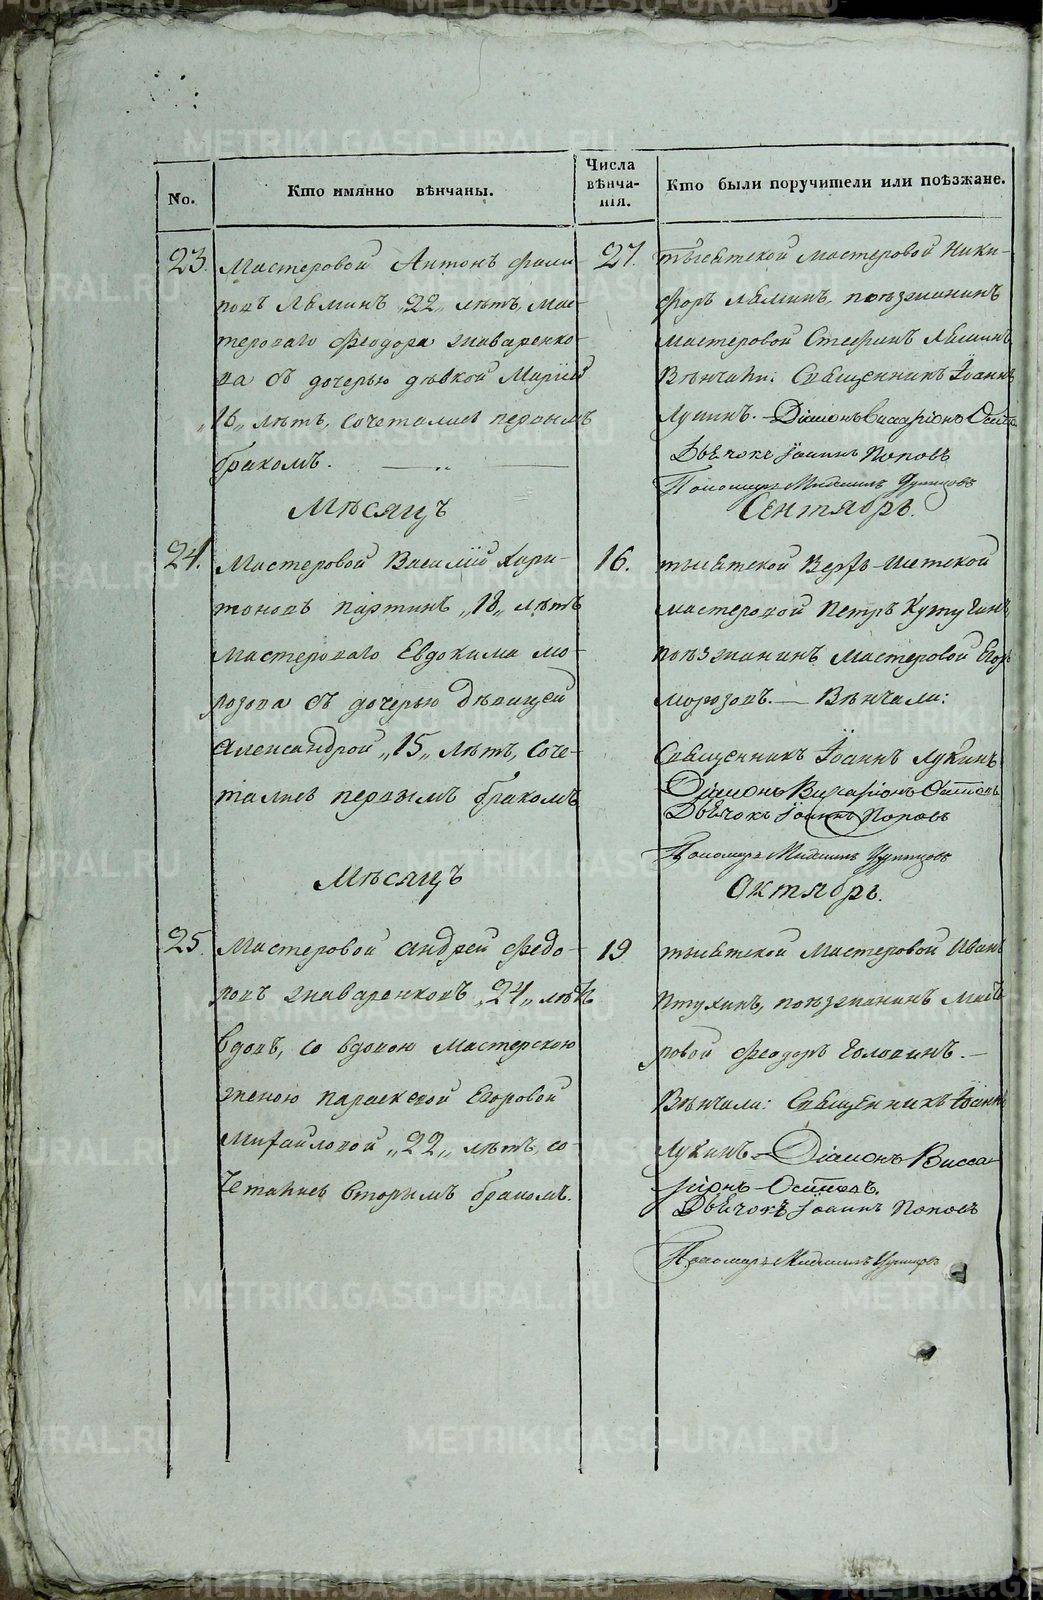 METRIKI.GASO-URAL.RU
No.
Кто имянно вѣнчаны.
Числа
вѣнча-
нія.
Кто были поручители или поѣзжане.
23.
Мастеровой Антонъ Фили
повъ Лѣминъ „22„ лѣтъ, мас-
тероваго Феодора
ва съ дочерью дѣвкой Маріей
„16„ лѣтъ, сочетались первымъ
бракомъ.
27.
тысятской мастеровой Ники-
форъ Лѣминъ, поѣзжанинъ
мастеровой Стефанъ Лѣминъ
Вѣнчали: Священникъ Іоаннъ
Лукинъ. Діаконъ Виссаріонъ
Дьячокъ Іоаннъ Поповъ
Пономарь Михаилъ
Мѣсяцъ
Сентябрь.
24.
Мастеровой Василій Хари-
тоновъ Партинъ „18„ лѣтъ
мастероваго Евдокима Мо-
розова съ дочерью дѣвицей
Александрой „15„ лѣтъ, соче-
тались первымъ бракомъ
16.
тысятской Верхъ-Исетской
мастеровой Петръ Кутугинъ
поѣзжанинъ мастеровой Егоръ
Морозовъ. — Вѣнчали:
Священникъ Іоаннъ Лукинъ
Діаконъ Виссаріонъ
Дьячокъ Іоаннъ Поповъ
Пономарь Михаилъ
Мѣсяцъ
Октябрь.
25.
Мастеровой Андрей Федо-
ровъ „24„ лѣтъ
вдовъ, со вдовою мастерскою
женою Параскевой Егоровой
Михайловой „22„ лѣтъ, со
четались вторымъ бракомъ.
19
тысятской мастеровой Иванъ
Птухинъ, поѣзжанинъ масте
ровой Феодоръ Головинъ. —
Вѣнчали: Священникъ Іоаннъ
Лукинъ — Діаконъ Висса-
ріонъ
Дьячокъ Іоаннъ Поповъ
Пономарь Михаилъ